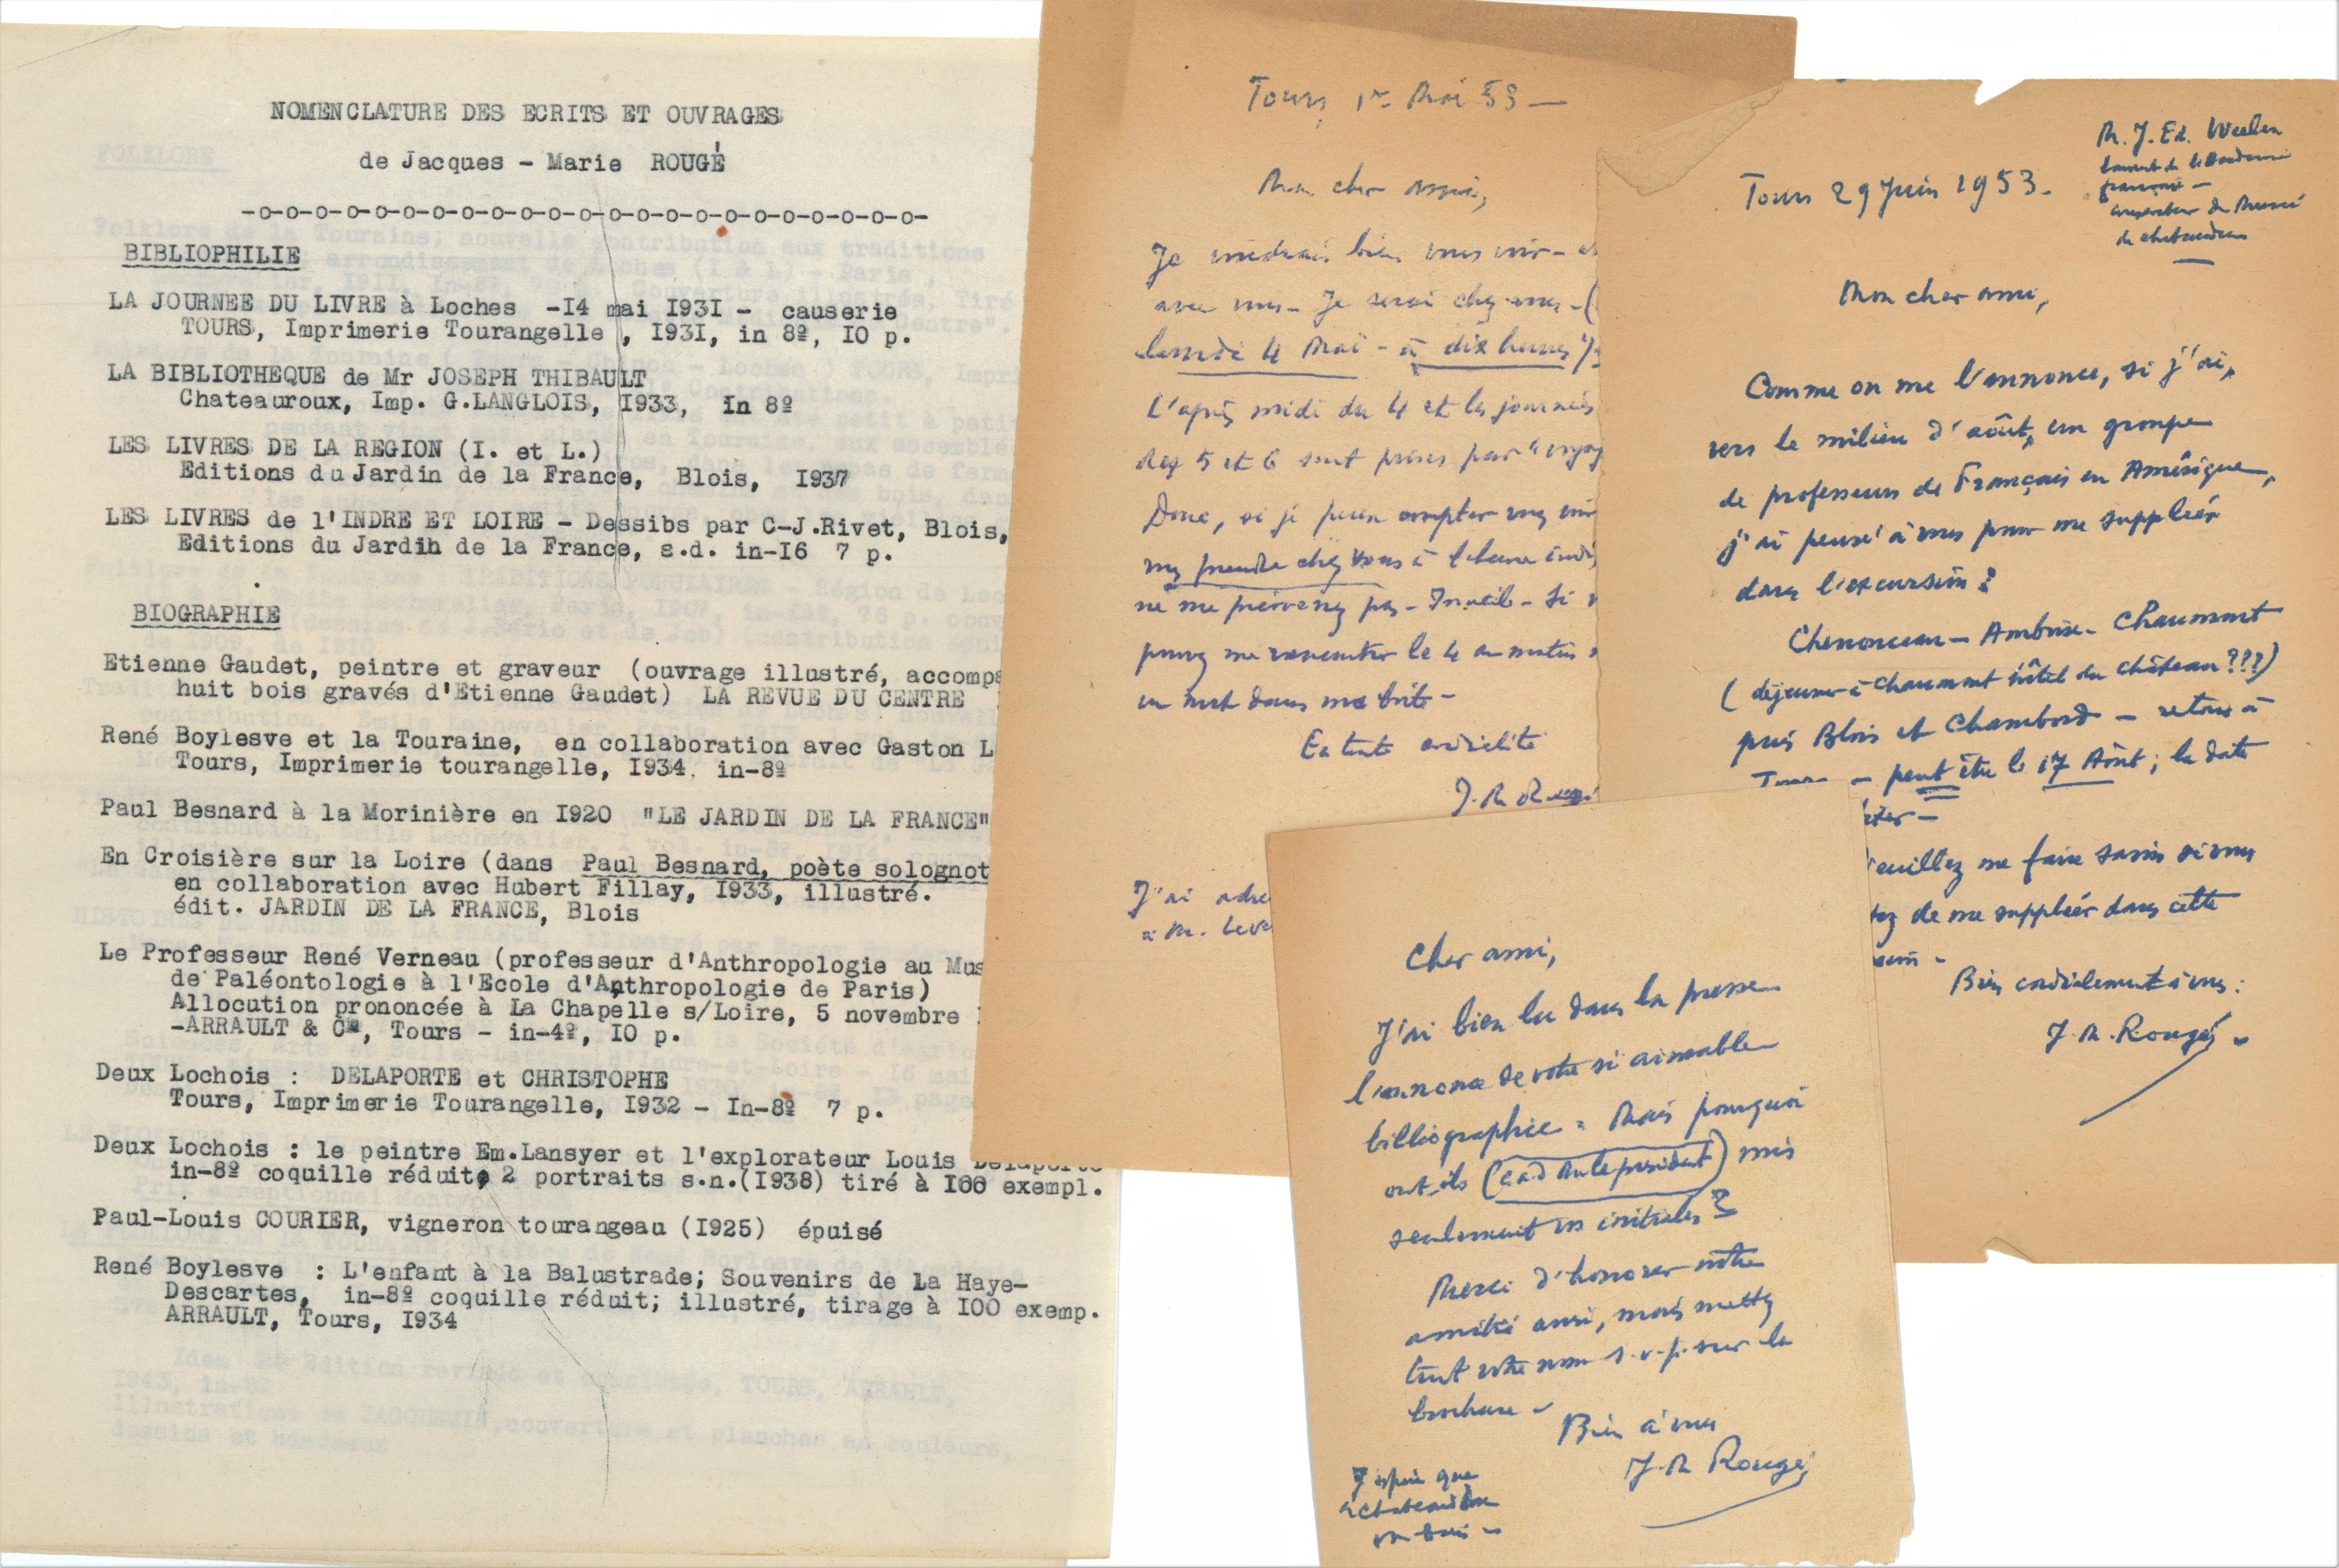 NOMENCLATURE DES ECRITS ET OUVRAGES
de Jacques - Marie ROUGÉ
-o-o-o-o-o-o-o-o-o-o-o-o-o-o-o-o-o-o-o-o-o-o-o-
BIBLIOPHILIE
LA JOURNEE DU LIVRE à Loches -I4 mai I93I - causerie
TOURS, Imprimerie Tourangelle , I93I, in 8º, IO p.
LA BIBLIOTHEQUE de Mr JOSEPH THIBAULT
Chateauroux, Imp. G.LANGLOIS, I933, In 8º
LES LIVRES DE LA REGION (I. et L.)
Editions du Jardin de la France, Blois, I937
LES LIVRES de l'INDRE ET LOIRE - Dessibs par C-J.Rivet, Blois,
Editions du Jardin de la France, s.d. in-I6 7 p.
BIOGRAPHIE
Etienne Gaudet, peintre et graveur (ouvrage illustré, accompa
huit bois gravés d'Etienne Gaudet) LA REVUE DU CENTRE
René Boylesve et la Touraine, en collaboration avec Gaston L
Tours, Imprimerie tourangelle, I934. in-8º
Paul Besnard à la Morinière en I920 "LE JARDIN DE LA FRANCE"
En Croisière sur la Loire (dans Paul Besnard, poète solognot
en collaboration avec Hubert Fillay, I933, illustré.
édit. JARDIN DE LA FRANCE, Blois
Le Professeur René Verneau (professeur d'Anthropologie au Mus
de Paléontologie à l'Ecole d'Anthropologie de Paris)
Allocution prononcée à La Chapelle s/Loire, 5 novembre
-ARRAULT & Cie, Tours - in-4º, IO p.
Deux Lochois : DELAPORTE et CHRISTOPHE
Tours, Imprimerie Tourangelle, I932 - In-8º 7 p.
Deux Lochois : le peintre Em.Lansyer et l'explorateur Louis Delaporte
in-8º coquille réduit, 2 portraits s.n.(I938) tiré à I00 exempl.
Paul-Louis COURIER, vigneron tourangeau (I925) épuisé
René Boylesve : L'enfant à la Balustrade; Souvenirs de La Haye-
Descartes, in-8º coquille réduit; illustré, tirage à IOO exemp.
ARRAULT, Tours, I934
Tours 1er Mai 53 —
Mon cher ami,
Je voudrais bien vous voir - et
avec vous - Je serai chez vous - (
lundi 4 Mai - à dix heures
L'après midi du 4 et les journées
des 5 et 6 sont prises par
Donc, si je peux compter vous voir
vous prendre chez vous à l'heure indi
ne me prévenez pas - Inutile - Si
pouvez me rencontrer le 4 au matin
un mot dans ma boîte -
En toute cordialité
J. M. Rougé
J'ai adre
à M.
Tours 29 Juin 1953 -
M. J. Ed. Weelen
lauréat de l'Académie
française -
conservateur du Musée
de chateaudun
Mon cher ami,
Comme on me l'annonce, si j'ai,
vers le milieu d'août, un groupe
de professeurs de Français en Amérique,
j'ai pensé à vous pour me suppléer
dans l'excursion :
Chenonceau - Amboise - Chaumont
( déjeuner à Chaumont hôtel du château ???)
puis Blois et Chambord - retour à
Tours - peut être le 17 Août ; la date
euillez me faire savoir si vous
tez de me suppléer dans cette
Bien cordialement à vous :
J. M. Rougé
Cher ami,
J'ai bien lu dans la presse
l'annonce de votre si aimable
bibliographie = Mais pourquoi
ont-ils (c.a.d M. le président) mis
seulement vos initiales ?
Merci d'honorer notre
amitié ainsi, mais mettez
tout votre nom s.v.p. sur la
brochure -
Bien à vous
J. M. Rougé
J'espère que